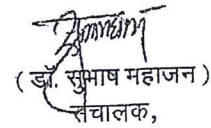 ( डॉ. सुभाष महाजन )
संचालक,